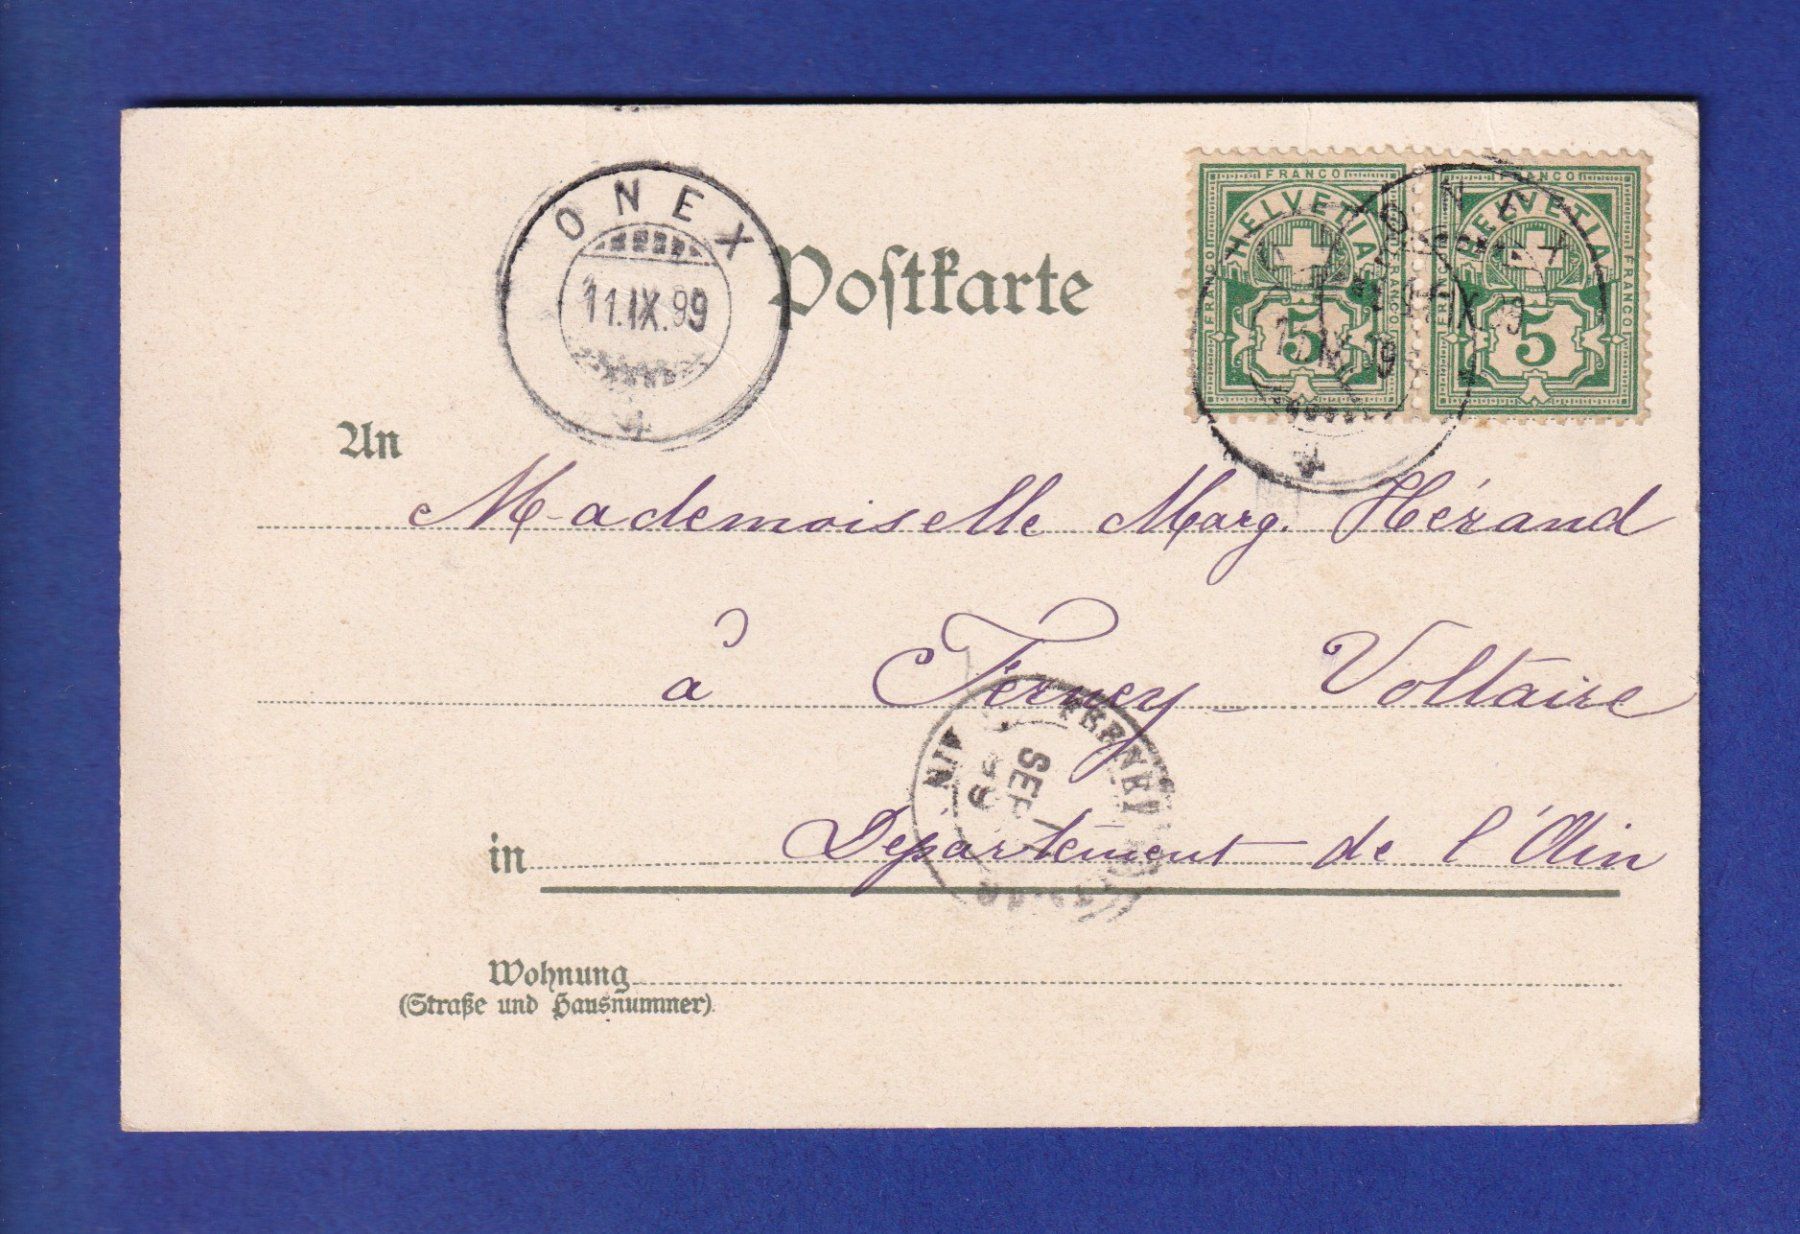 ONEX
11.IX.99
Postkarte
FRANCO FRANCO FRANCO HELVETIA 5
FRANCO FRANCO FRANCO HELVETIA 5
ONEX
IX.99
An
Mademoiselle Marg. Hérand
à Ferney-Voltaire
SEPT
99
AIN
in Département de l'Ain
Wohnung
(Straße und Hausnummer)